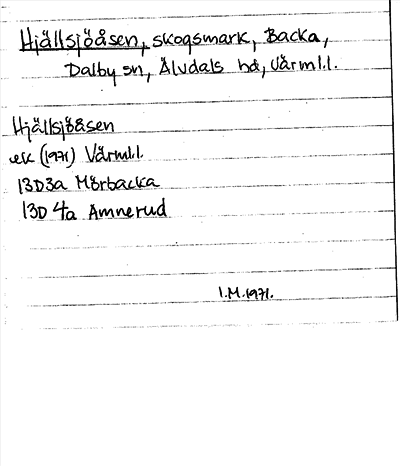 Hjällsjöåsen, skogsmark, Backa,
Dalby sn, Älvdals hd, Värml.l.
Hjällsjöåsen
ek (1971) Värml.l.
13D3a Mörbacka
13D 4a Amnerud
I.M.1971.